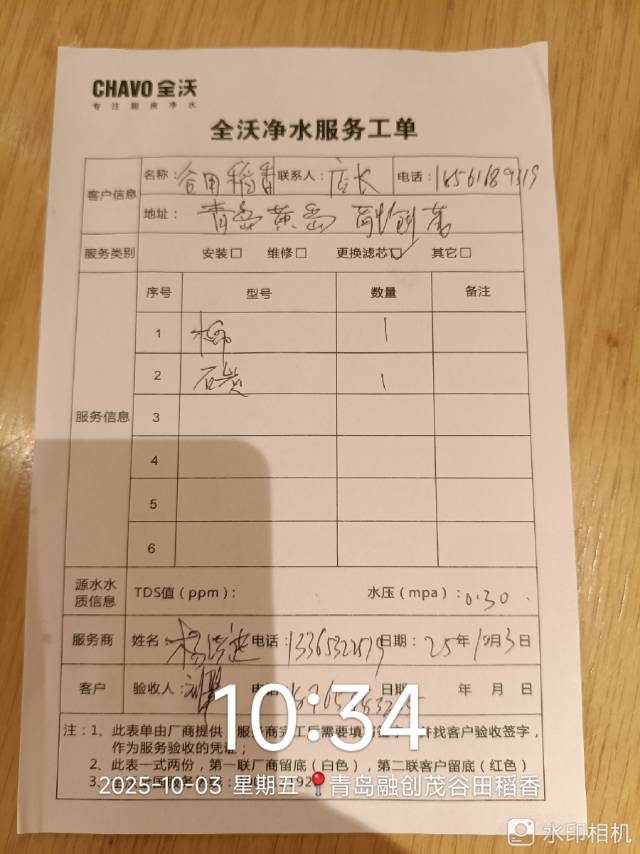 CHAVO 全沃
专注厨房净水
全沃净水服务工单
客户信息
名称: 谷田稻香 联系人: 店长 电话: 18561689319
地址: 青岛黄岛 融创茂
服务类别 安装□ 维修□ 更换滤芯☑ 其它□
服务信息
序号 型号 数量 备注
1 棉 1
2 石炭 1
3
4
5
6
源水水质信息 TDS值(ppm): 水压(mpa): 0.30
服务商 姓名: 电话: 日期: 25年10月3日
客户 验收人: 电话: 日期: 年 月 日
注: 1、此表单由厂商提供,服务商完工后需要填写 并找客户验收签字,
作为服务验收的凭证;
2、此表一式两份,第一联厂商留底(白色),第二联客户留底(红色)
10:34
2025-10-03 星期五 青岛融创茂谷田稻香
水印相机